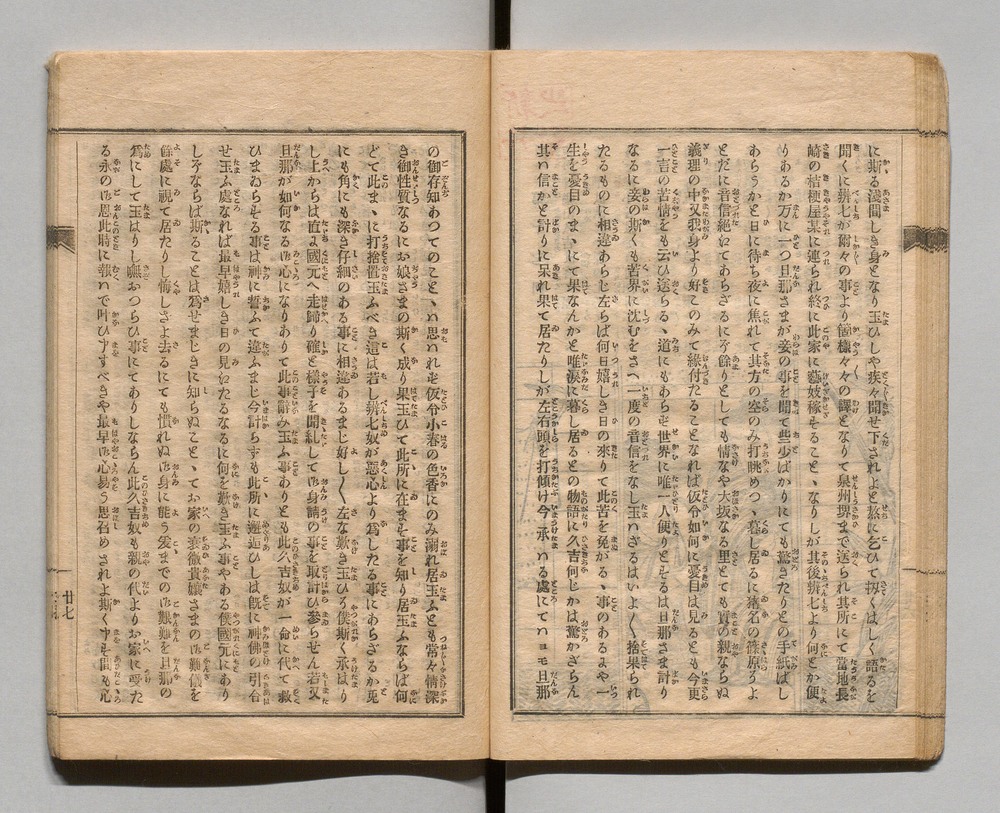 に斯る淺間しき身となり玉ひしや疾々聞せ下されよと熬に乞ひて扨くはしく語るを
聞くに辨七が附々の事より箇樣々々の譯となりて泉州堺まで送られ其所にて當地長
崎の桔梗屋某に連られ終に此家に藝妓稼をることゝなりしが其後辨七より何とか便
りあるか万に一つ旦那さまが妾の事を聞て些少ばかりにても驚きたりとの手紙ばし
あらうかと日に待ち夜に焦れて其方の空のみ打眺めつゝ暮し居るに猪名の篠原うよ
とだに音信絶にてあらざるに餘りとしても情なや大坂なる里とても實の親ならぬ
義理の中又我身より好このみて縁付たることなれば仮令如何に憂目は見るとも今更
一言の苦情をも云ひ送らるゝ道にもあらぞ世界に唯一人便りとそるは旦那さま計り
なるに妾の斯くも苦界に沈むをさへ一度の音信をなし玉ハざるはいよ〱捨果られ
たるものに相違あらじ左らば何日嬉しき日の來りて此苦を免がるゝ事のあるよや一
生を憂目のまゝにて果なんかと唯涙に暮し居るとの物語に久吉何じかは驚かざらん
其ハ信かと計りに呆れ果て居たりしが左右頭を打傾け今承ハる處にてハヨモ旦那
の御存知あつてのことゝハ思ハれぞ仮令小春の色香にのみ溺れ居玉ふとも常々情深
き御性質なるにお娘さまの斯く成り果玉ひて此所に在まそ事を知り居玉ふならば何
どて此まゝに打捨置玉ふべき這は若し辨七奴が惡心より爲したる事にあらざるか兎
にも角にも深き仔細のある事に相違あるまじ好し〱左な歎き玉ひろ僕斯く承はり
し上からは直よ國元へ走歸り確と樣子を聞糺して御身請の事を取計ひ參らせん若又
旦那が如何なる御心になりありて此事辭み玉ふ事わりとも此久吉奴が一命に代て救
ひまゐらそる事は神に誓ふて違ふまじ今計らずも此所に邂逅ひしは既に神佛の引合
せ玉ふ處なれば最早嬉しき日の見ゆたるなるに何を歎き玉ふ事やある僕國元にあり
しならば斯ることは爲せまじきに知らぬことゝてお家の秘藏貴孃さまの御難儀を
餘處に視て居たりし悔しさよ去るにても慣れぬ御身に能う爰までの御艱難を旦那の
爲にして玉はりし嘸おつらひ事にてありしならん此久吉奴も親の代よりお家に受た
る永の御恩此時に報ハで叶ひ申すべきや最早御心易う思召めされよ斯く申す間も心
廿七